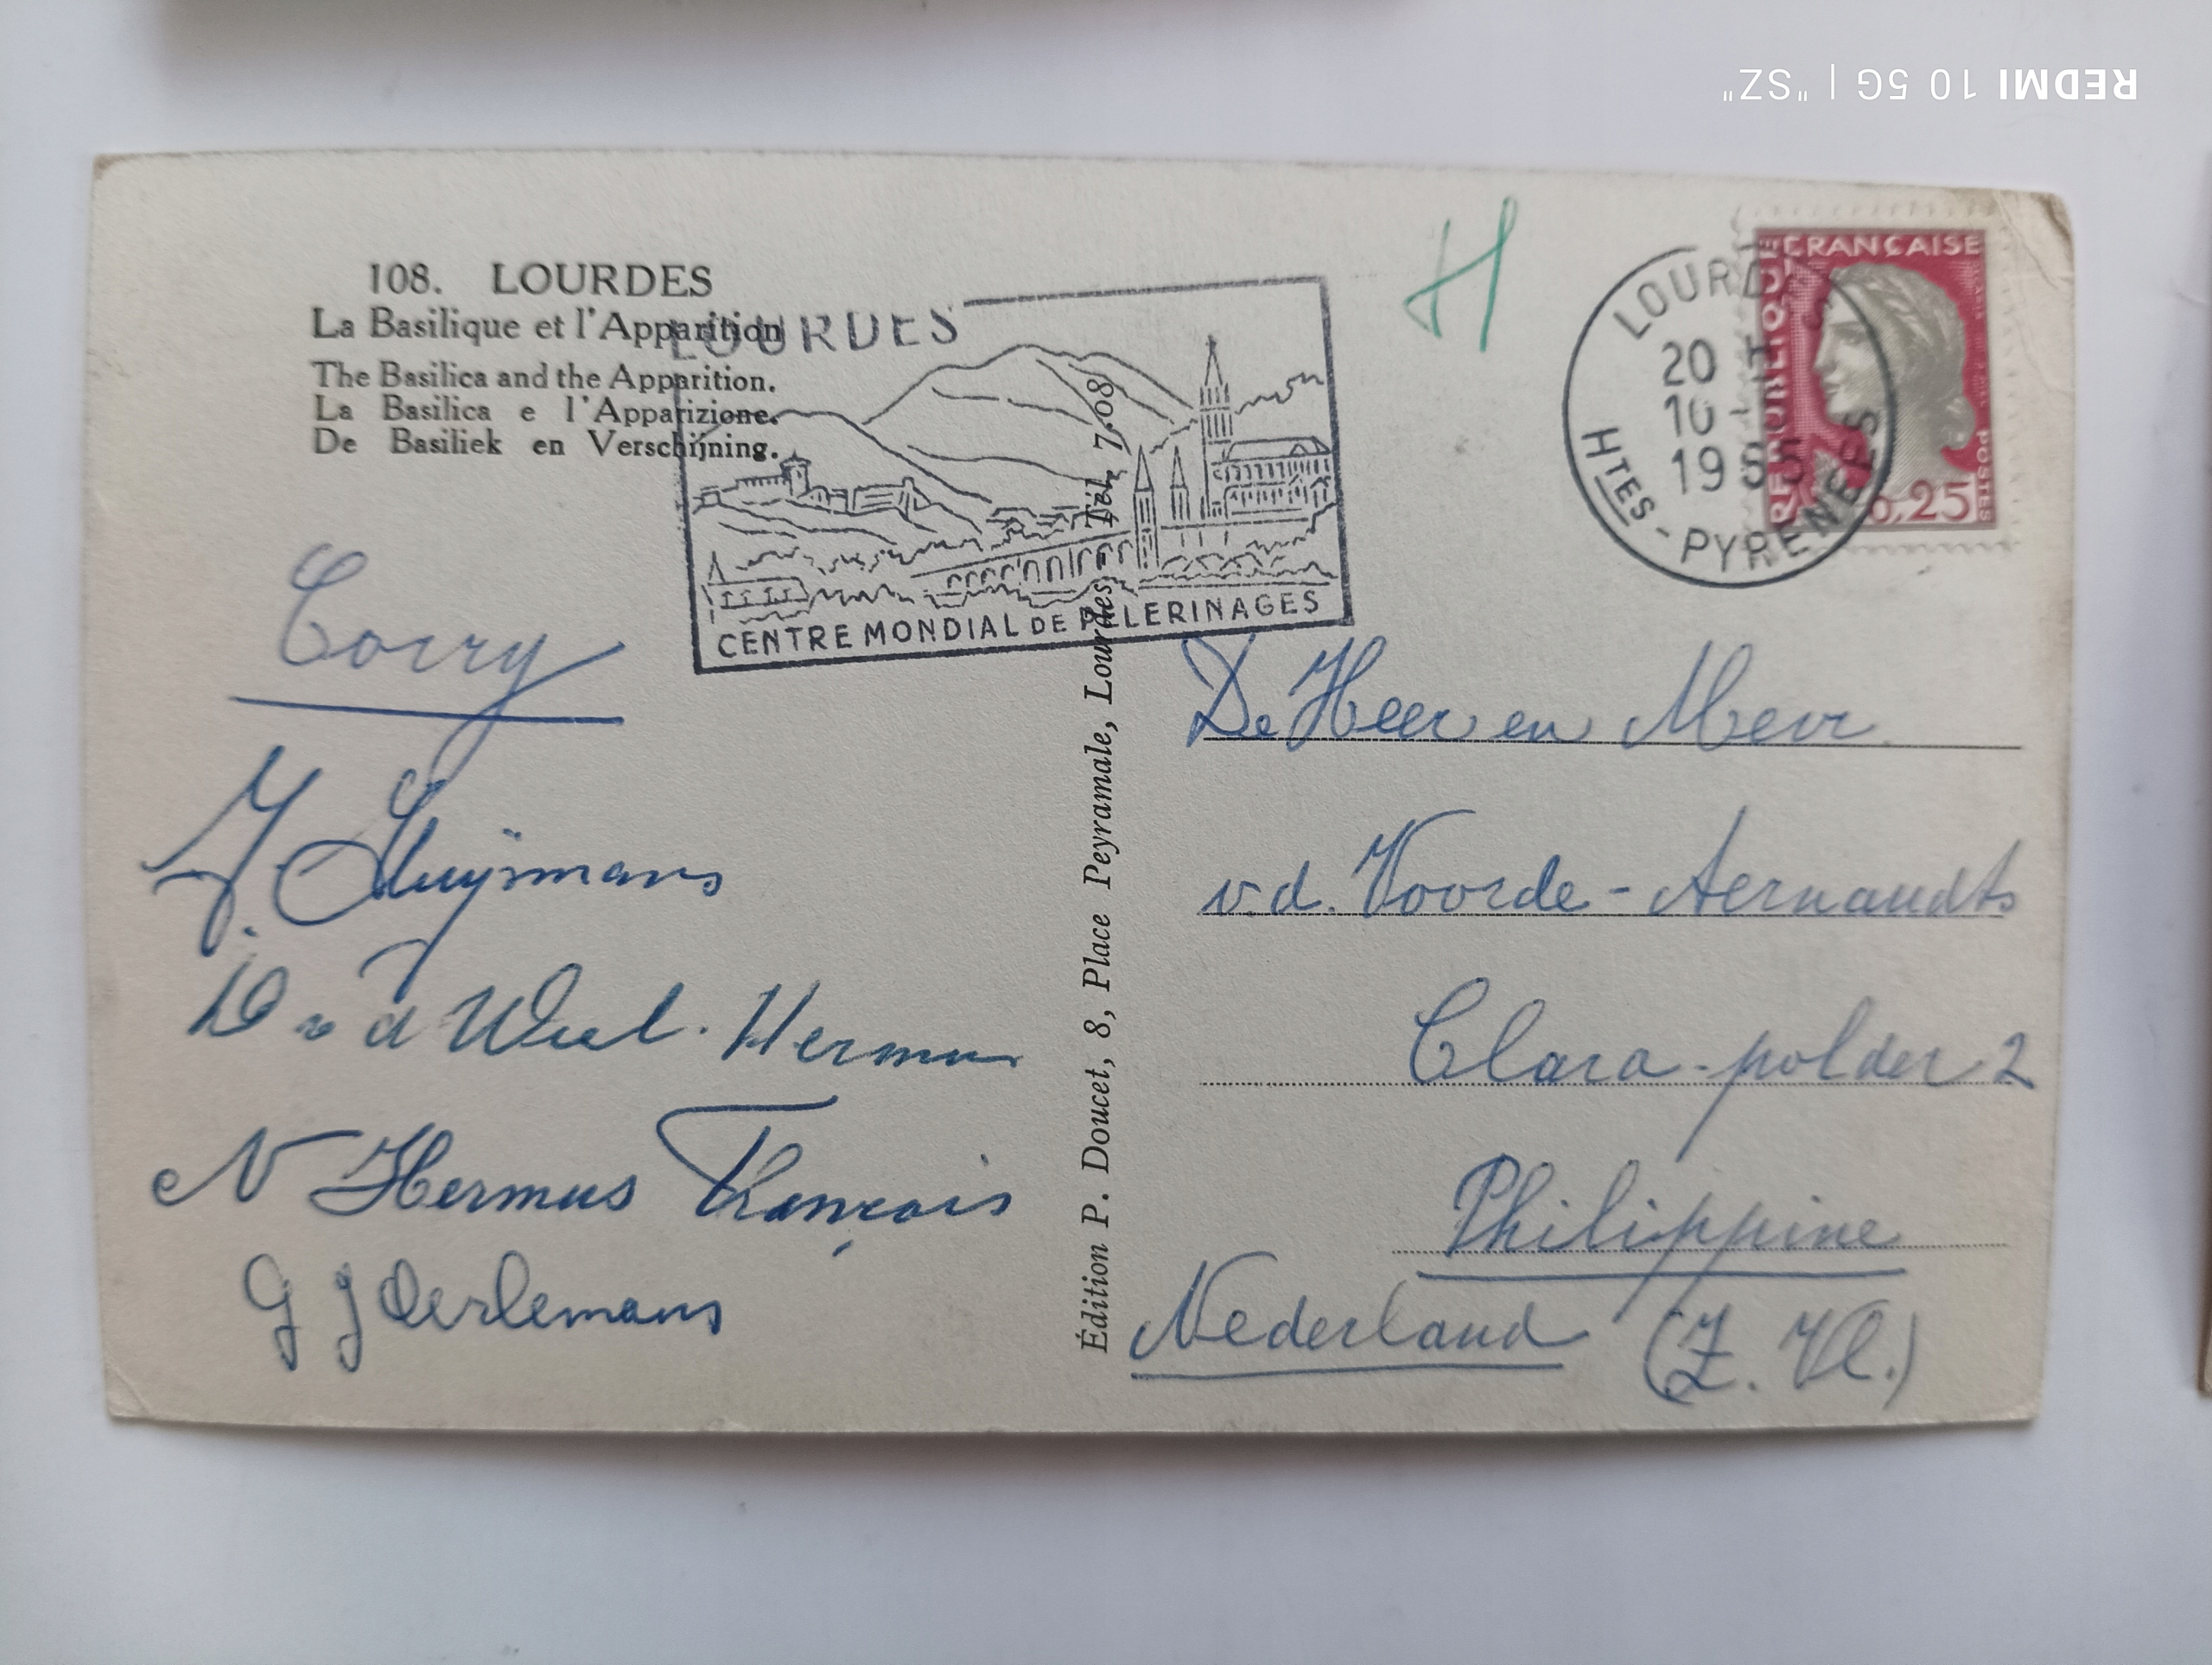 REDMI 10 5G | "SZ"
108. LOURDES
La Basilique et l'Apparition
The Basilica and the Apparition.
La Basilica e l'Apparizione.
De Basiliek en Verschijning.
LOURDES
CENTRE MONDIAL DE PÈLERINAGES
H
LOURDES
20 H
10 -
1965
HTES - PYRENEES
REPUBLIQUE FRANÇAISE
POSTES
0,25
Édition P. Doucet, 8, Place Peyramale, Lourdes Tél. 7.08
Corry
J. Huÿsmans
D v d Wiel. Hermus
N Hermus François
G J Oerlemans
De Heer en Mevr.
v.d. Voorde - Aernaudts
Clara-polder 2
Philippine
Nederland (Z. Vl.)